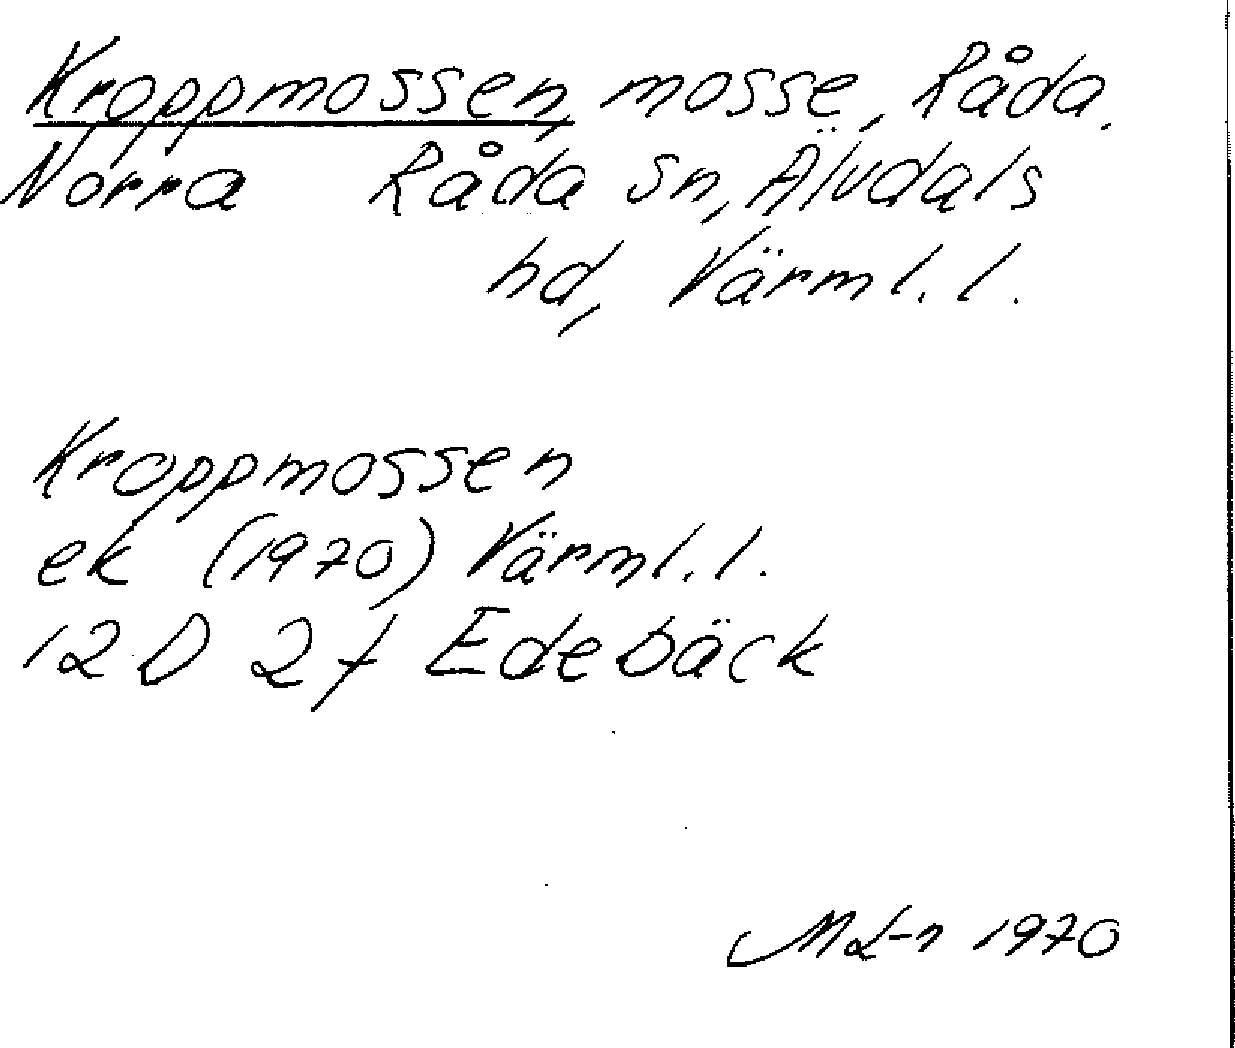 Kroppmossen, mosse, Råda.
Norra Råda sn, Älvdals
hd, Värml. l.
Kroppmossen
ek (1970) Värml. l.
12 D 2 f Edebäck
ML-n 1970